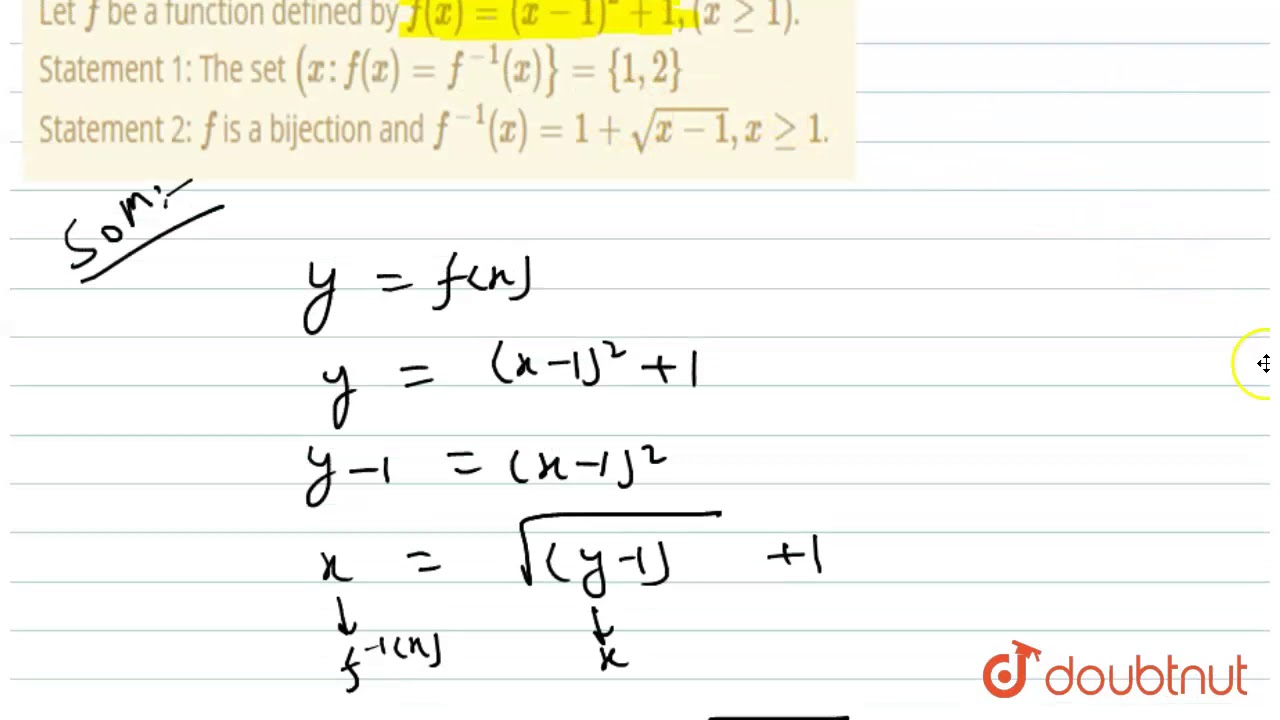 Let f be a function defined by f(x) = (x − 1)² + 1, (x ≥ 1).
Statement 1: The set (x : f(x) = f⁻¹(x)} = {1, 2}
Statement 2: f is a bijection and f⁻¹(x) = 1 + √(x − 1), x ≥ 1.
Som:-
y = f(x)
y = (x-1)² + 1
y-1 = (x-1)²
x = √(y-1) + 1
↓ ↓
f⁻¹(x) x
doubtnut